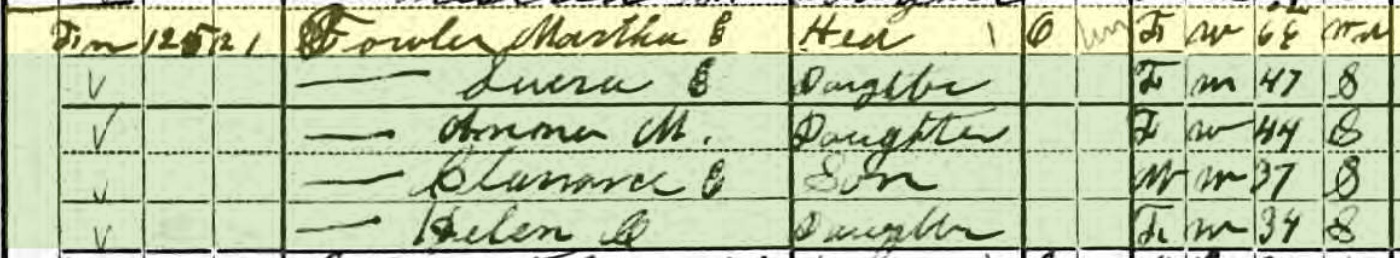 Fm 125 121 Fowler Martha E Hed 1 O F W Wd
— E Daughter F W 47 S
— M. Daughter F W 44 S
— Clarance E Son M W 37 S
— Helen Daughter F W 34 S